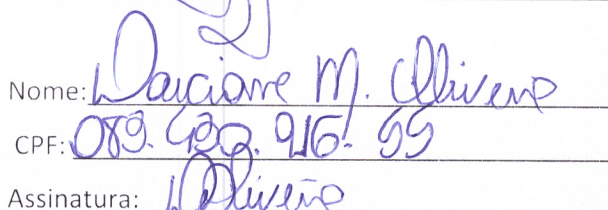 Nome: Darciane M. Oliveira
CPF: 089.490.916-99
Assinatura: DOliveira